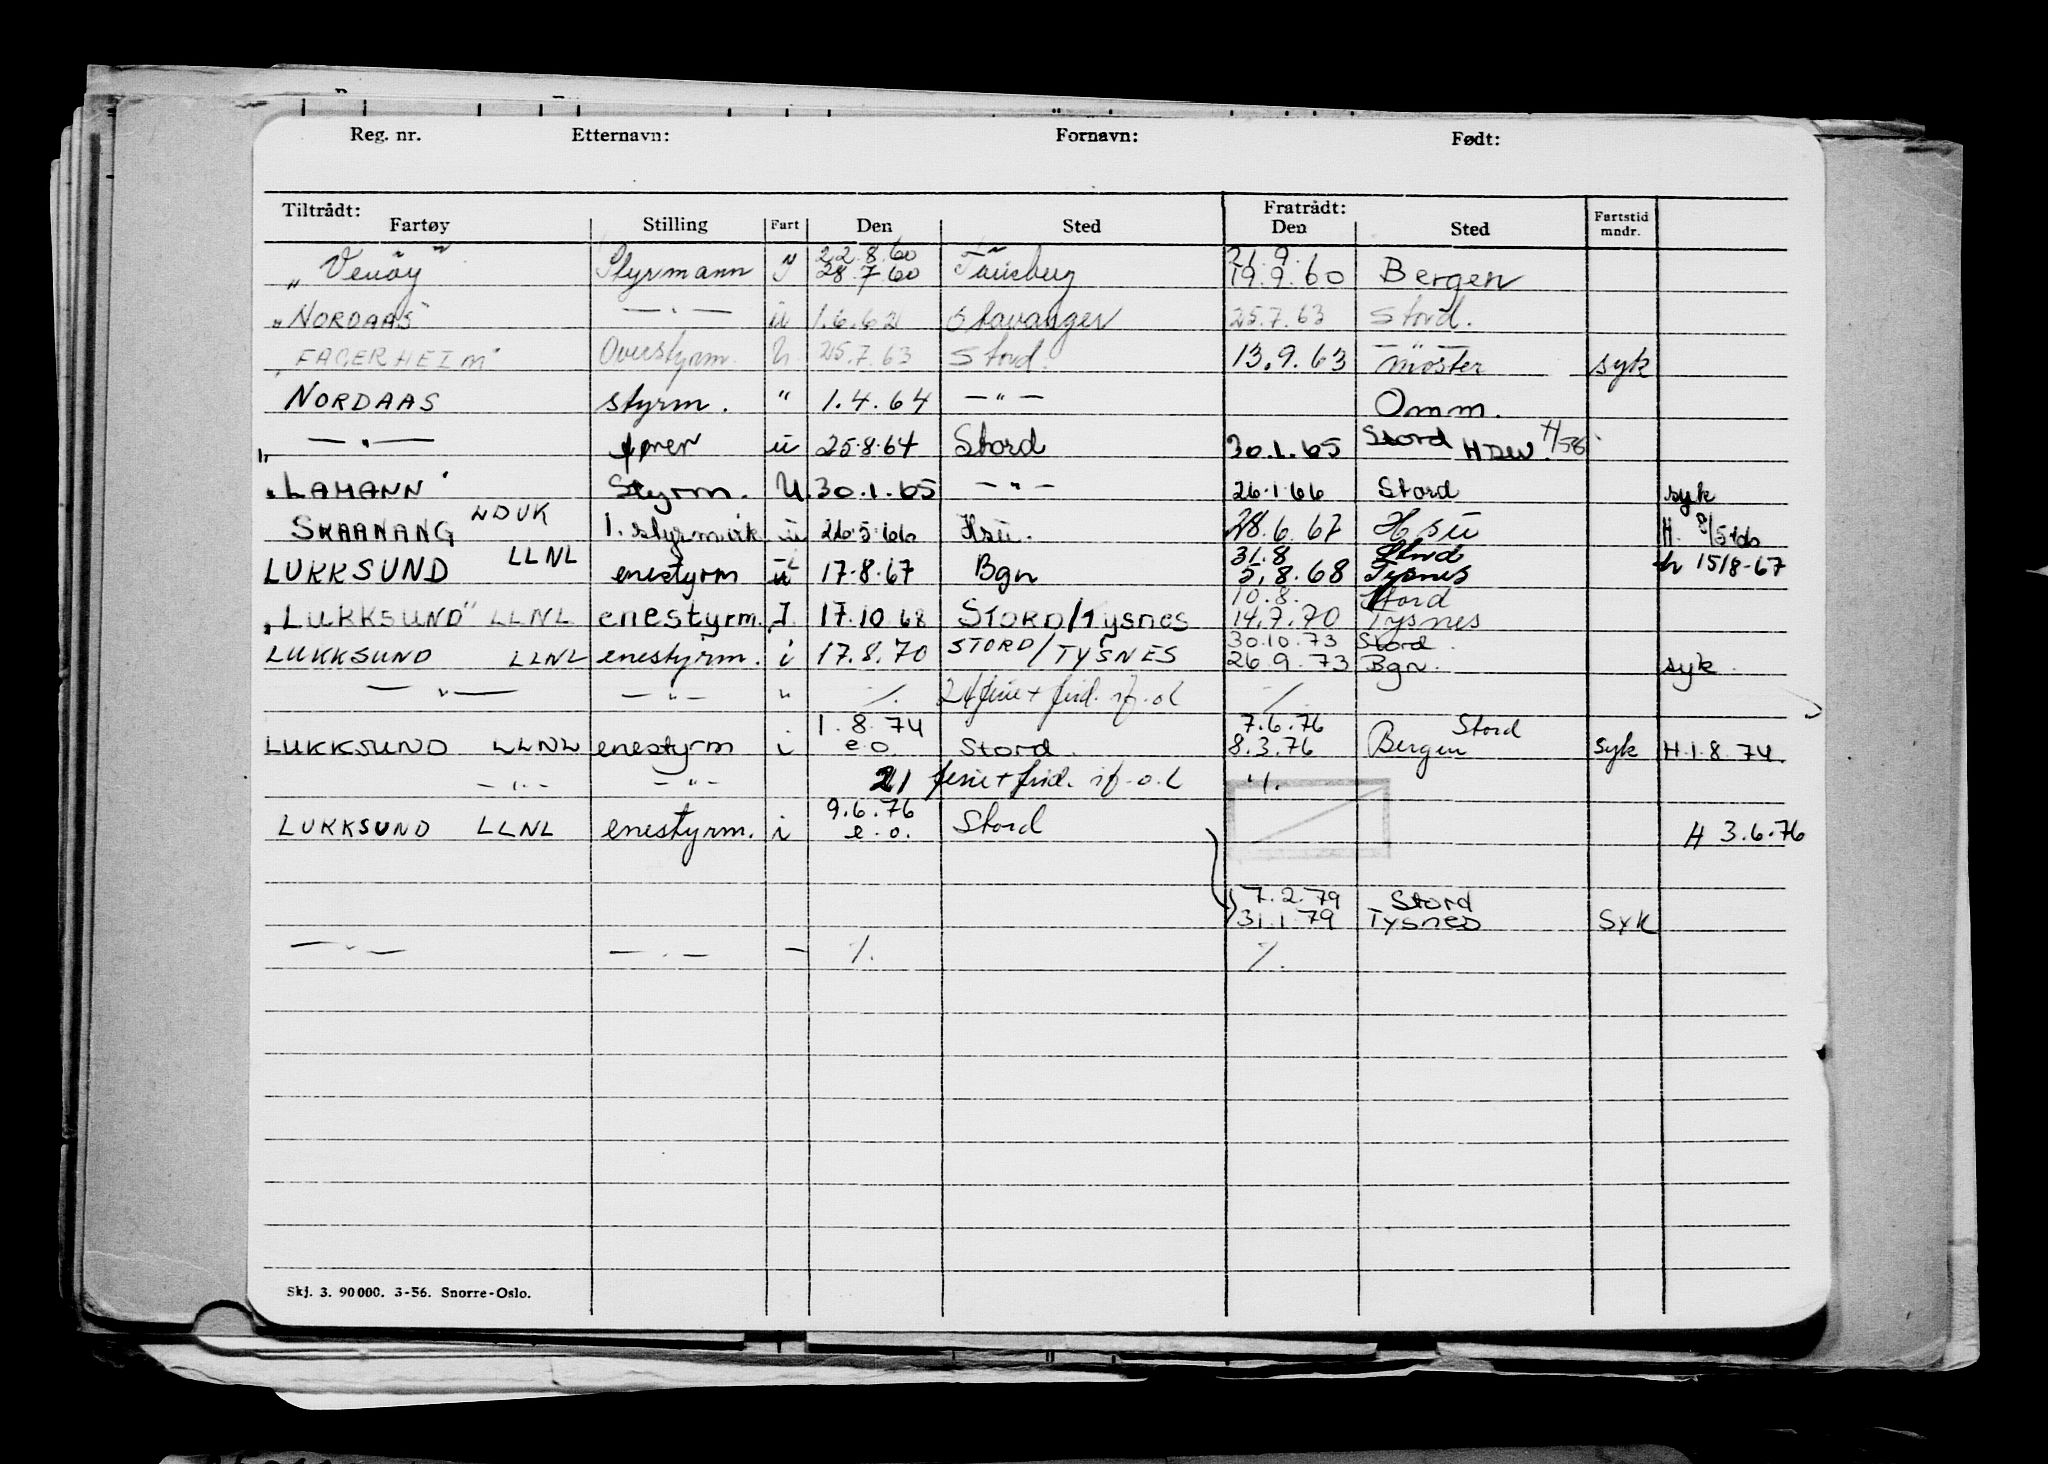 Reg. nr. Etternavn: Fornavn: Født:
Tiltrådt: Fratrådt:
Fartøy Stilling Fart Den Sted Den Sted Fartstid mndr.
22.8.60 21.9.
„Venöy" Styrmann 28.7.60 Tønsberg 19.9.60 Bergen
„NORDAAS" — " — u 1.6.62 Stavanger 25.7.63 Stord.
„FAGERHEIM" Overstyrm. U. 25.7.63 Stord. 13.9.63 — " — Moster syk
NORDAAS styrm. " 1.4.64 — " — Omm.
— " — u 25.8.64 Stord 30.1.65 Stord
„LAMANN" Styrm. U. 30.1.65 — " — 26.1.66 Stord syk
SKAANANG LDUK 1. styrm u 26.5.66 Hsu. 28.6.67 Hsu H.
31.8 Stord
LUKKSUND LLNL enestyrm u 17.8.67 Bgn 5.8.68 Tysnes h 15/8-67
10.8. Stord
„LUKKSUND" LLNL enestyrm. I. 17.10.68 STORD/Tysnes 14.7.70 Tysnes
30.10.73 Stord.
LUKKSUND LLNL enestyrm. i 17.8.70 STORD/TYSNES 26.9.73 Bgn. syk.
— " — — " — " ./. 21 ferie + frid. if. o.l ./.
1.8.74 7.6.76 Stord
LUKKSUND LLNL enestyrm i e.o. Stord. 8.3.76 Bergen syk H.1.8.74.
— " — — " — 21 ferie + frid. if. o.l ./.
9.6.76
LUKKSUND LLNL enestyrm. i e.o. Stord H 3.6.76
7.2.79 Stord
31.1.79 Tysnes SYK
— " — — " — — ./. ./.
Skj. 3. 90 000. 3-56. Snorre-Oslo.